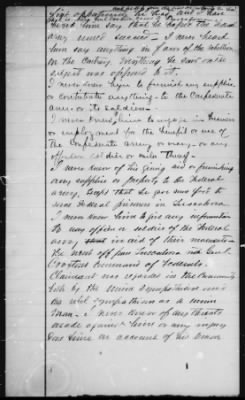 heard him say that he hoped the Federal
army would succeed - I never heard
him say anything in favor of the rebellion
on the contrary everything he said on the
subject was opposed to it.
I never knew him to furnish any supplies
or contribute anything to the Confederate
army or its soldiers
I never knew him to engage in business
or employment for the benefit or use of
the Confederate Army or navy or any
officer soldier or sailor thereof -
I never knew of his giving aid or furnishing
any supplies or property to the Federal
army, except that he gave some food to
some Federal prisoners in Tuscaloosa.
I never knew him to give any information
to any officer or soldier of the Federal
army in aid of their movements -
He went off from Tuscaloosa with Genl
Croxton's command of Federals.
Claimant was regarded in the community
both by the Union sympathizers and
the rebel sympathizers as a union
man - I never knew of any threats
made against him or any injury
done him on account of his Union